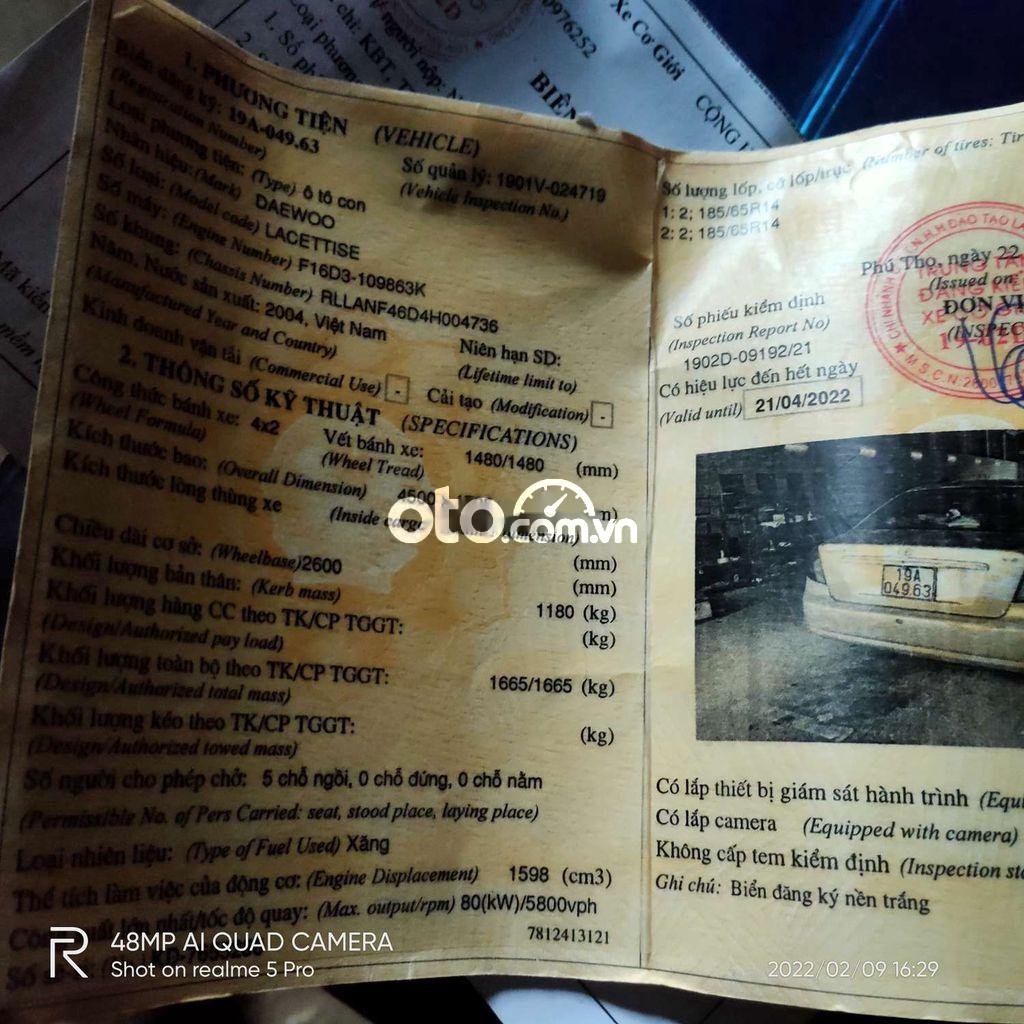 0976252
Xe Cơ Giới
CỘNG
BIÊN
người nộp:
Loại phương
chỉ: KBT,
1. Số
2.
1. PHƯƠNG TIỆN (VEHICLE)
Biển đăng ký: 19A-049.63
(Registration Number)
Số quản lý: 1901V-024719
(Vehicle Inspection No.)
Loại phương tiện: (Type) ô tô con
Nhãn hiệu: (Mark) DAEWOO
Số loại: (Model code) LACETTISE
Số máy: (Engine Number) F16D3-109863K
Số khung: (Chassis Number) RLLANF46D4H004736
Năm, Nước sản xuất: 2004, Việt Nam
(Manufactured Year and Country)
Niên hạn SD:
(Lifetime limit to)
Kinh doanh vận tải (Commercial Use) - Cải tạo (Modification) -
2. THÔNG SỐ KỸ THUẬT (SPECIFICATIONS)
Công thức bánh xe: 4x2 Vết bánh xe: 1480/1480 (mm)
(Wheel Formula) (Wheel Tread)
Kích thước bao: (Overall Dimension) 4500
Kích thước lòng thùng xe
(Inside cargo
Chiều dài cơ sở: (Wheelbase)2600 (mm)
Khối lượng bản thân: (Kerb mass) (mm)
1180 (kg)
Khối lượng hàng CC theo TK/CP TGGT: (kg)
(Design/Authorized pay load)
Khối lượng toàn bộ theo TK/CP TGGT: 1665/1665 (kg)
(Design/Authorized total mass)
Khối lượng kéo theo TK/CP TGGT: (kg)
(Design/Authorized towed mass)
Số người cho phép chở: 5 chỗ ngồi, 0 chỗ đứng, 0 chỗ nằm
(Permissible No. of Pers Carried: seat, stood place, laying place)
Loại nhiên liệu: (Type of Fuel Used) Xăng
Thể tích làm việc của động cơ: (Engine Displacement) 1598 (cm3)
nhất/tốc độ quay: (Max. output/rpm) 80(kW)/5800vph
7812413121
Số
Số lượng lốp, cỡ lốp/trục (Number of tires:
1: 2; 185/65R14
2: 2; 185/65R14
Phú Thọ, ngày 22
(Issued on
ĐƠN VỊ
(INSPEC
TRUNG TÂM
ĐĂNG KIỂM
Số phiếu kiểm định
(Inspection Report No)
1902D-09192/21
Có hiệu lực đến hết ngày
(Valid until) 21/04/2022
19A
049.63
Có lắp thiết bị giám sát hành trình (Equi
Có lắp camera (Equipped with camera)
Không cấp tem kiểm định (Inspection
Ghi chú: Biển đăng ký nền trắng
oto.com.vn
R
48MP AI QUAD CAMERA
Shot on realme 5 Pro
2022/02/09 16:29